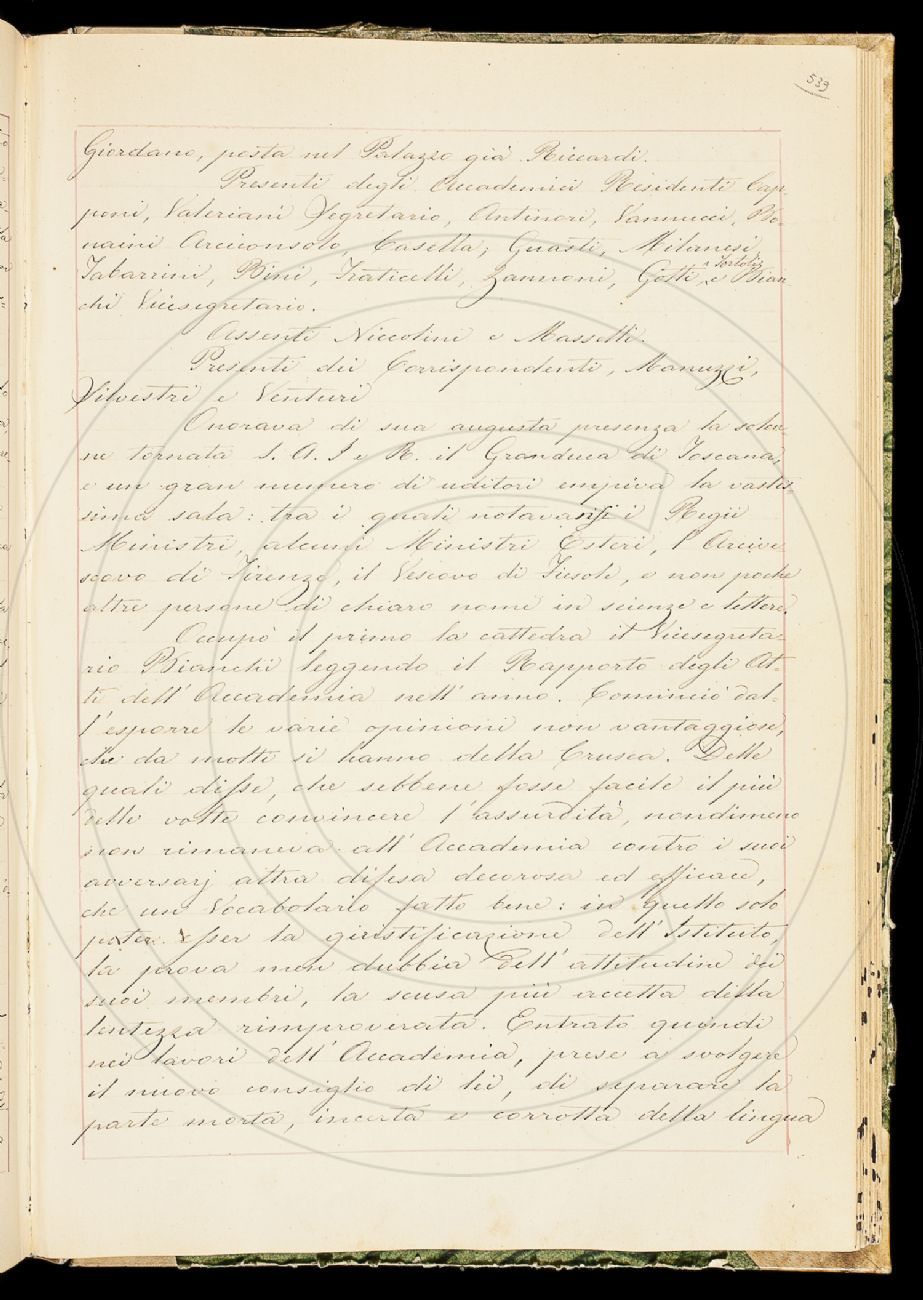 533
Giordano, posta nel Palazzo già Riccardi.
Presenti degli Accademici Residenti Cap-
poni, Valeriani Segretario, Antinori, Vannucci, Bo-
naini Arciconsolo, Casella, Guasti, Milanesi,
Tabarrini, Bini, Fraticelli, Zannoni, Gotti, Tortoli, e Bian
chi Vicesegretario.
Assenti Niccolini e Masselli.
Presenti dei Corrispondenti, Manuzzi,
Silvestri e Venturi
Onorava di sua augusta presenza la solen-
ne tornata S. A. I e R. il Granduca di Toscana,
e un gran numero di uditori empiva la vastis-
sima sala: tra i quali notavansi i Regii
Ministri, alcuni Ministri Esteri, l'Arcive
scovo di Firenze, il Vescovo di Fiesole, e non poche
altre persone di chiaro nome in scienze e lettere.
Occupò il primo la cattedra il Vicesegreta-
rio Bianchi leggendo il Rapporto degli At-
ti dell'Accademia nell'anno. Cominciò dal-
l'esporre le varie opinioni non vantaggiose,
che da molti si hanno della Crusca. Delle
quali disse, che sebbene fosse facile il più
delle volte convincere l'assurdità, nondimeno
non rimaneva all'Accademia contro i suoi
avversarj altra difesa decorosa ed efficace,
che un Vocabolario fatto bene: in quello solo
poter esser la giustificazione dell'Istituto,
la prova men dubbia dell'attitudine dei
suoi membri, la scusa più accetta della
lentezza rimproverata. Entrato quindi
nei lavori dell'Accademia, prese a svolgere
il nuovo consiglio di lei, di separare la
parte morta, incerta e corrotta della lingua